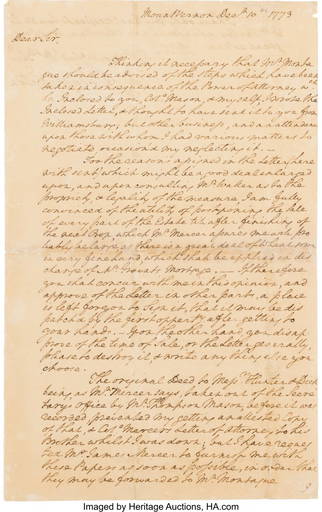 Mount Vernon Decr 10th 1773
Dear Sir,
Thinking it necessary that Mr Monta
gue should be advised of the steps which have been
taken in consequence of the Power of Attorney wch
he Inclosed to you, Colo Mason, & myself, I wrote the
Inclosed Letter, & thought to have sent it to you from
Williamsburg; but other business, and an attendance
upon those with whom I had various matters to
negotiate occasiond my neglecting it.
For the reasons assigned in the Letter here
with sent, which might be a good deal enlarged
upon, and upon consulting Mr as to the
propriety, & legality of the measure, I am fully
convinced of the utility of postponing the Sale
of every part of the Estate till after finishing of
the next Crop which Mr Mercer assures me will pro
bably be large, as there is a great deal of Wheat sown
in very fine land, which shall be applied in dis
charge of Mortgage. If therefore
you shall concur with me in this opinion, and
approve of the Letter in other parts, a place
is left for you to Sign it, that it may be dis
patchd by the first opportunity after getting to
your hand. Upon the other hand, if you disap
prove of the time of Sale, or the Letter generally,
please to destroy it & write any thing else you
choose.
The original Deed to Messrs Hunter &
being as Mr Mercer says, taken out of the Secre
tary's Office by Mr Thompson Mason, before it was
recorded, prevented my getting an attested Copy
of that, & Colo Mercer's Letter of Attorney to his
Brother whilst I was down; but I have reques
ted Mr James Mercer to furnish me with
these Papers as soon as possible, in order that
they may be forwarded to Mr Montague
Imaged by Heritage Auctions, HA.com